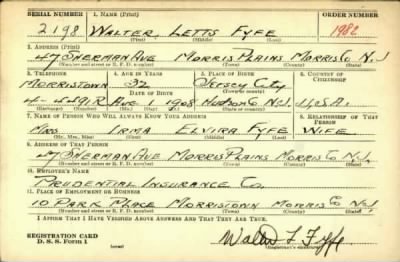 SERIAL NUMBER 1. NAME (Print) ORDER NUMBER
2198 WALTER LETTS FYFE 1982
(First) (Middle) (Last)
2. ADDRESS (Print)
47 SHERMAN AVE MORRIS PLAINS MORRIS CO N.J.
(Number and street or R. F. D. number) (Town) (County) (State)
3. TELEPHONE 4. AGE IN YEARS 5. PLACE OF BIRTH 6. COUNTRY OF CITIZENSHIP
MORRISTOWN 32 JERSEY CITY
DATE OF BIRTH (Town or county)
4-1491R 1908 HUDSON N.J. U.S.A.
(Exchange) (Number) (Mo.) (Day) (Yr.) (State or country)
7. NAME OF PERSON WHO WILL ALWAYS KNOW YOUR ADDRESS 8. RELATIONSHIP OF THAT PERSON
MRS IRMA ELVIRA FYFE WIFE
(Mr., Mrs., Miss) (First) (Middle) (Last)
9. ADDRESS OF THAT PERSON
47 SHERMAN AVE MORRIS PLAINS MORRIS CO. N.J.
(Number and street or R. F. D. number) (Town) (County) (State)
10. EMPLOYER'S NAME
PRUDENTIAL INSURANCE CO.
11. PLACE OF EMPLOYMENT OR BUSINESS
10 PARK PLACE MORRISTOWN MORRIS CO N.J.
(Number and street or R. F. D. number) (Town) (County) (State)
I AFFIRM THAT I HAVE VERIFIED ABOVE ANSWERS AND THAT THEY ARE TRUE.
REGISTRATION CARD
D. S. S. Form 1 (over) Walter L Fyffe
(Registrant's signature)